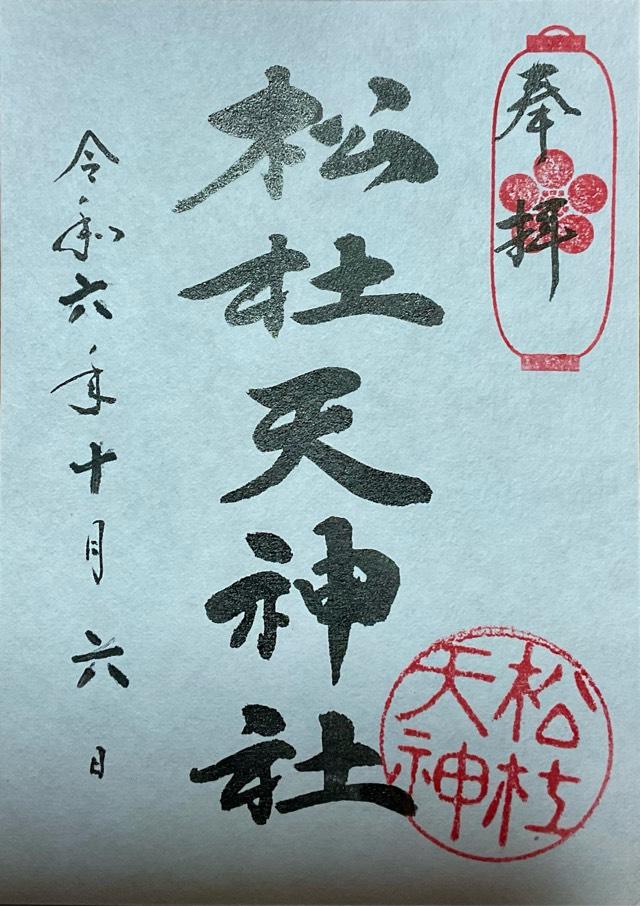 奉拝
松杜天神社
令和六年十月六日
松杜
天神